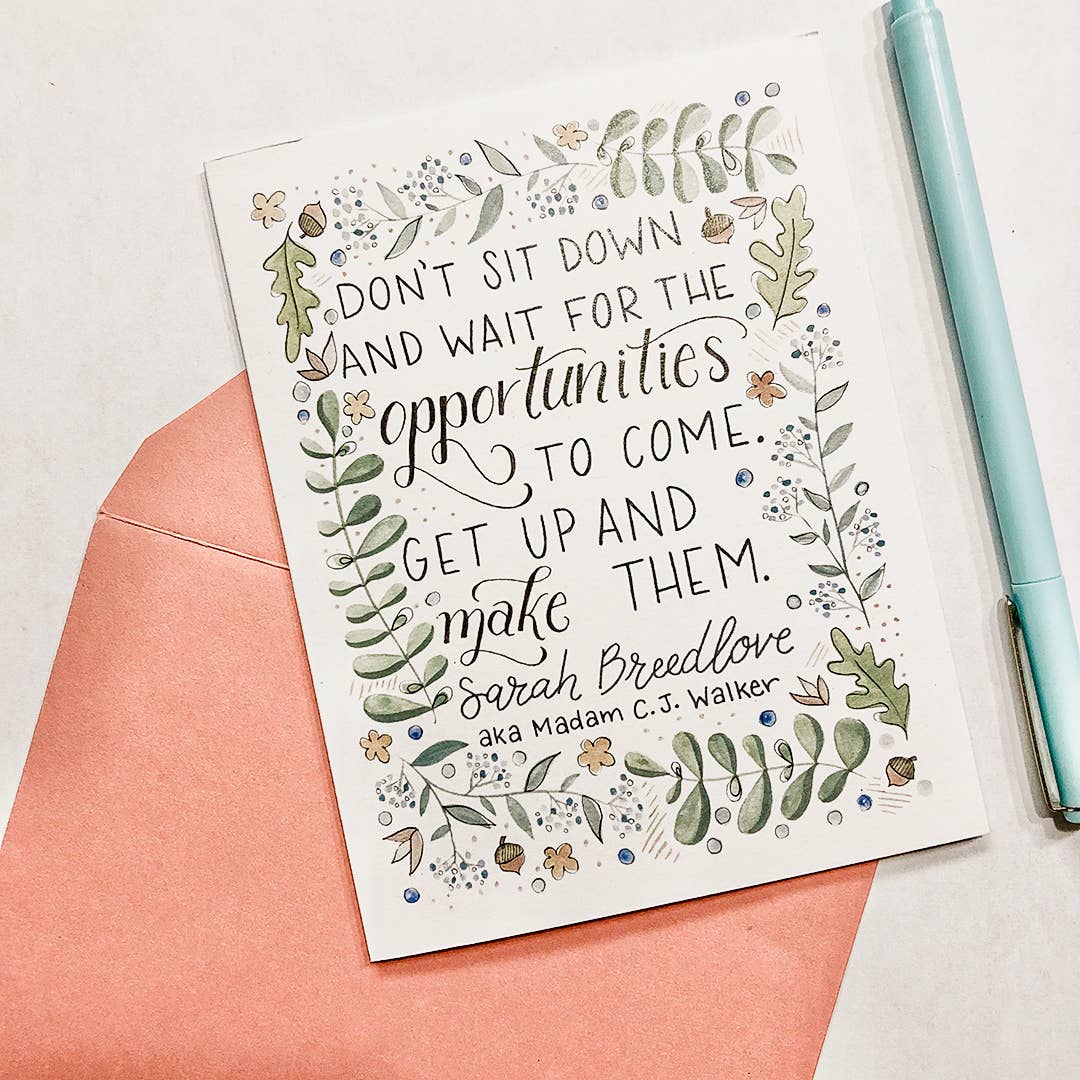 DON'T SIT DOWN
AND WAIT FOR THE
opportunities
TO COME.
GET UP AND
make THEM.
Sarah Breedlove
aka Madam C.J. Walker